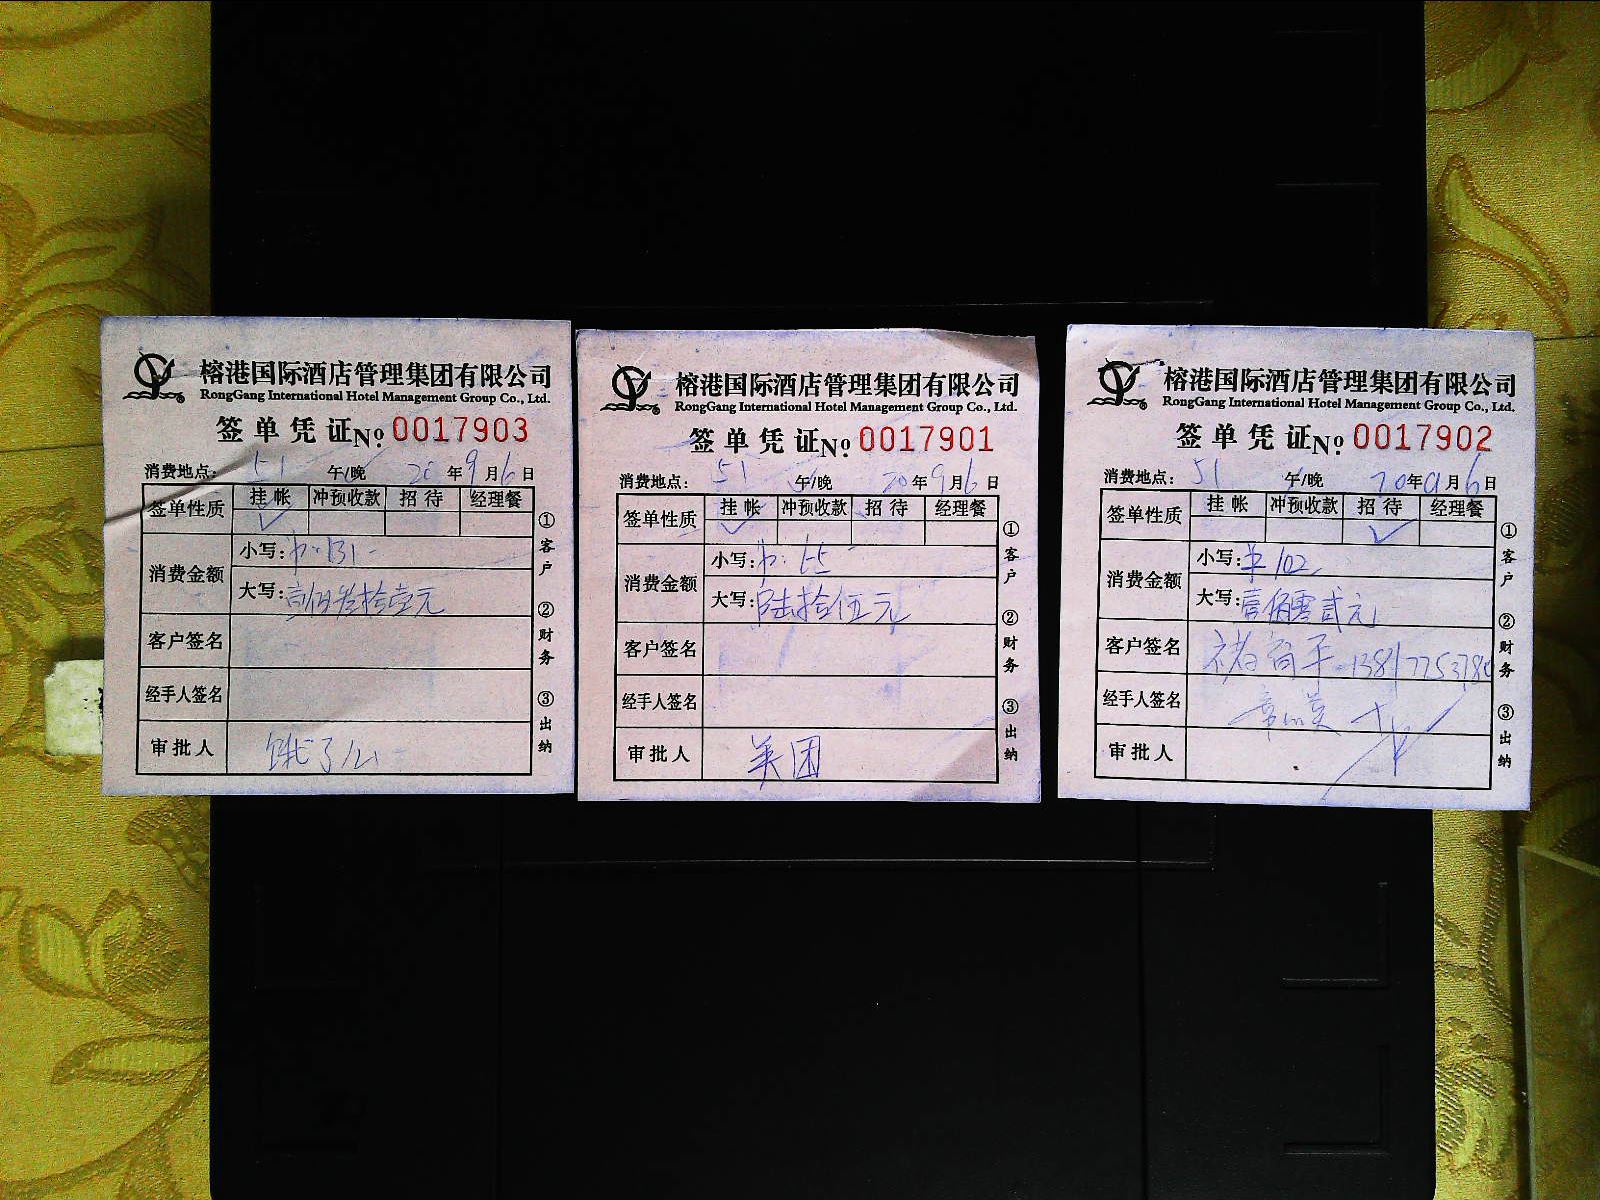 榕港国际酒店管理集团有限公司
RongGang International Hotel Management Group Co., Ltd.
签单凭证№ 0017903
消费地点: 51 午/晚 20年9月6日
签单性质 挂帐 冲预收款 招待 经理餐
消费金额
小写: 131-
大写: 壹佰叁拾壹元
客户签名
经手人签名
审批人 饿了么
①客户 ②财务 ③出纳
榕港国际酒店管理集团有限公司
RongGang International Hotel Management Group Co., Ltd.
签单凭证№ 0017901
消费地点: 51 午/晚 20年9月6日
签单性质 挂帐 冲预收款 招待 经理餐
消费金额
小写: 65-
大写: 陆拾伍元
客户签名
经手人签名
审批人 美团
①客户 ②财务 ③出纳
榕港国际酒店管理集团有限公司
RongGang International Hotel Management Group Co., Ltd.
签单凭证№ 0017902
消费地点: 51 午/晚 20年9月6日
签单性质 挂帐 冲预收款 招待 经理餐
消费金额
小写: 102
大写: 壹佰零贰元
客户签名
经手人签名
审批人
①客户 ②财务 ③出纳